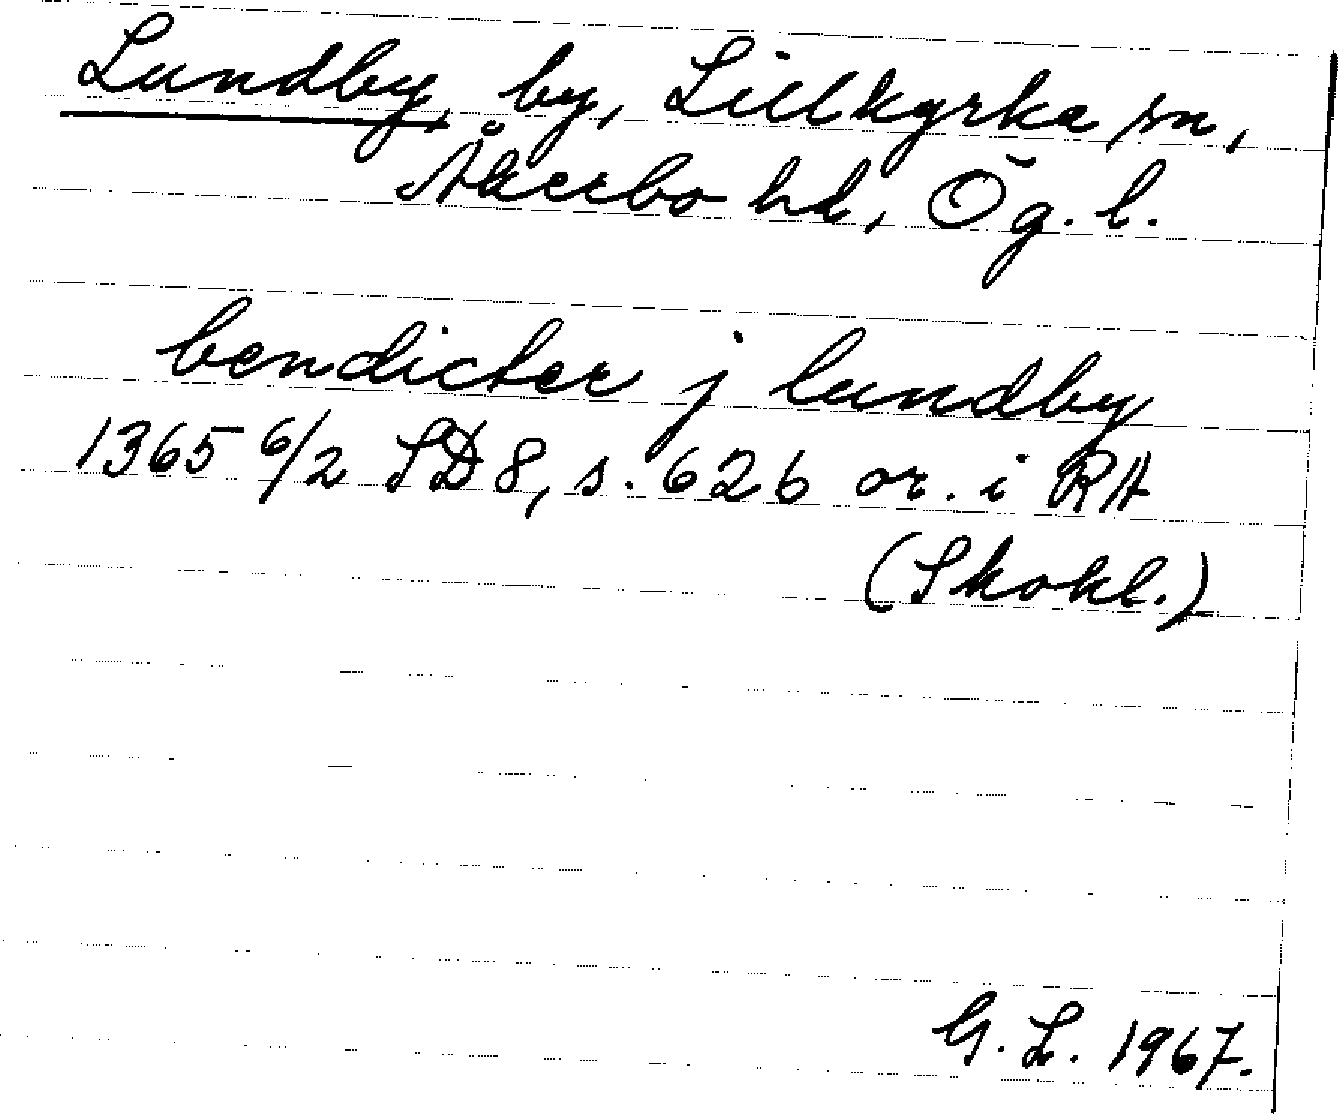 Lundby, by, Lillkyrka sn,
Åkerbo hd, Ög. l.
bendicter j lundby
1365 6/2 SD 8, s. 626 or. i RA
(Skokl.)
G. L. 1967.